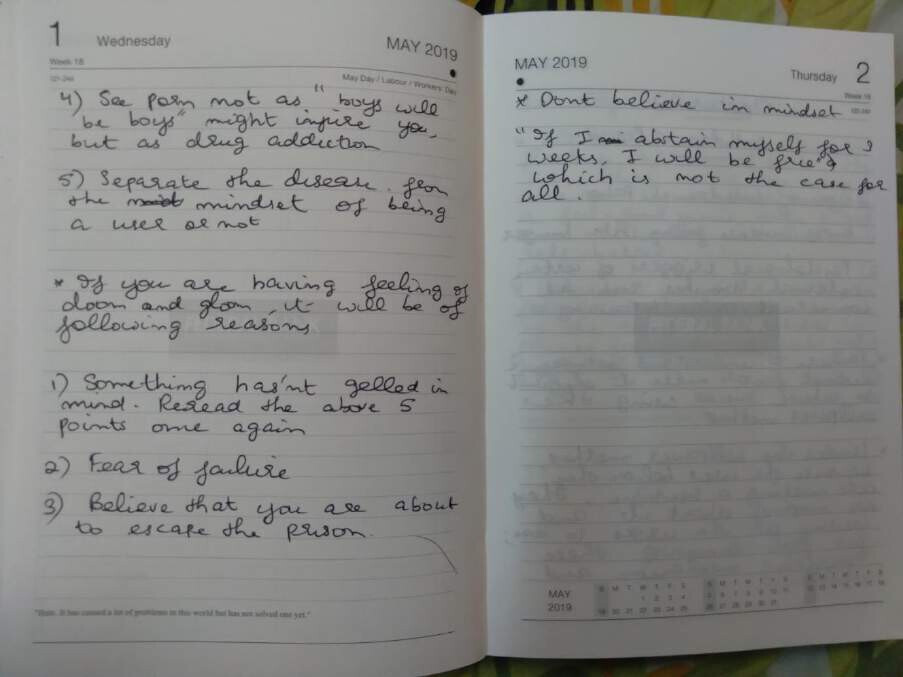 1 Wednesday MAY 2019
Week 18
121-244 May Day / Labour / Workers' Day
4) See porn not as "boys will
be boys" might injure you,
but as drug addiction
5) Separate the disease from
the mindset of being
a user or not
* If you are having feeling of
doom and gloom, it will be of
following reasons
1) Something has'nt gelled in
mind. Reread the above 5
points once again
2) Fear of failure
3) Believe that you are about
to escape the prison.
"Hate. It has caused a lot of problems in this world but has not solved one yet."
MAY 2019 Thursday 2
Week 18
* Dont believe in mindset
"If I abstain myself for 3
weeks, I will be free"
which is not the case for
all.
MAY
2019
S M T W T F S